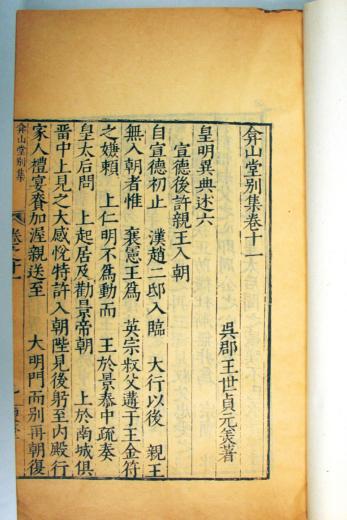 弇山堂別集卷十一
吳郡王世貞元美著
皇明異典述六
宣德後許親王入朝
自宣德初止 漢趙二邸入臨 大行以後 親王
無入朝者惟 襄憲王爲 英宗叔父遘于王金符
之嫌賴 上仁明不爲動而 王於景泰中疏奏
皇太后問 上起居及勸景帝朝 上於南城俱
畱中上見之大感悅特許入朝陛見後躬至內殿行
家人禮宴眷加渥親送至 大明門而別再朝復
弇山堂別集
卷十一
一